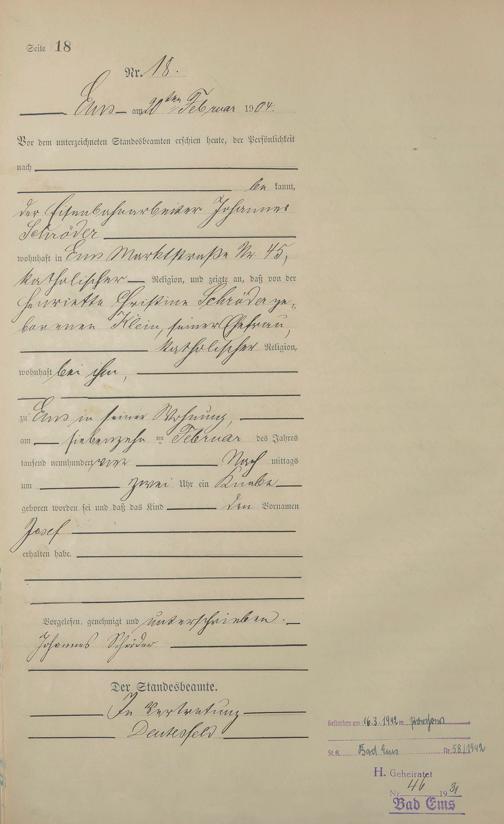 Seite 18
Nr. 18.
Ems am 20ten Februar 1904.
Vor dem unterzeichneten Standesbeamten erschien heute, der Persönlichkeit
nach
be kannt,
der Eisenbahnarbeiter Johannes
Schröder
wohnhaft in Ems Marktstraße Nr 45,
katholischer Religion, und zeigte an, daß von der
Henriette Christine Schröder ge-
borenen Klein, seiner Ehefrau,
katholischer Religion,
wohnhaft bei ihm,
zu Ems in seiner Wohnung,
am siebenzehn ten Februar des Jahres
tausend neunhundert vier Nach mittags
um zwei Uhr ein Knabe
geboren worden sei und daß das Kind den Vornamen
Josef
erhalten habe.
Vorgelesen, genehmigt und unterschrieben.
Johannes Schröder
Der Standesbeamte.
In Vertretung
Gestorben am 16.3.1942 in
St.A. Bad Ems Nr. 58/1942
H. Geheiratet
Nr. 46 1931
Bad Ems